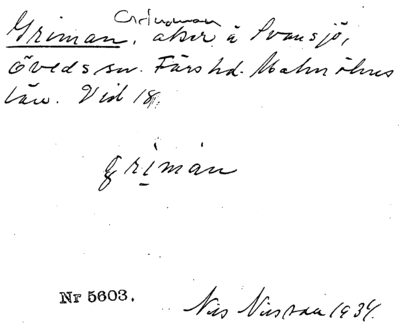 Grinman
Griman, åker å Svansjö,
Öveds sn. Färs hd. Malmöhus
län. Vid 18
griman
Nr 5603.
Nils 1934.